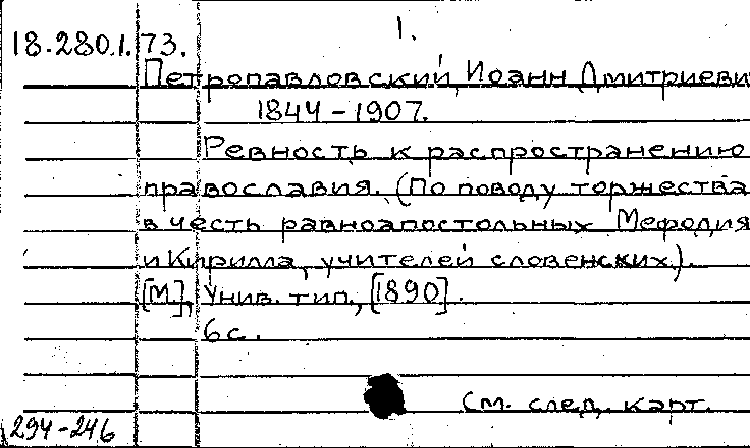 1.
18.280.1.73.
Петропавловский, Иоанн Дмитриеви
1844-1907.
Ревность к распространению
православия. (По поводу торжества
в честь равноапостольных Мефодия
и Кирилла, учителей словенских).
[М.], Унив. тип., [1890].
6с.
См. след. карт.
294-246